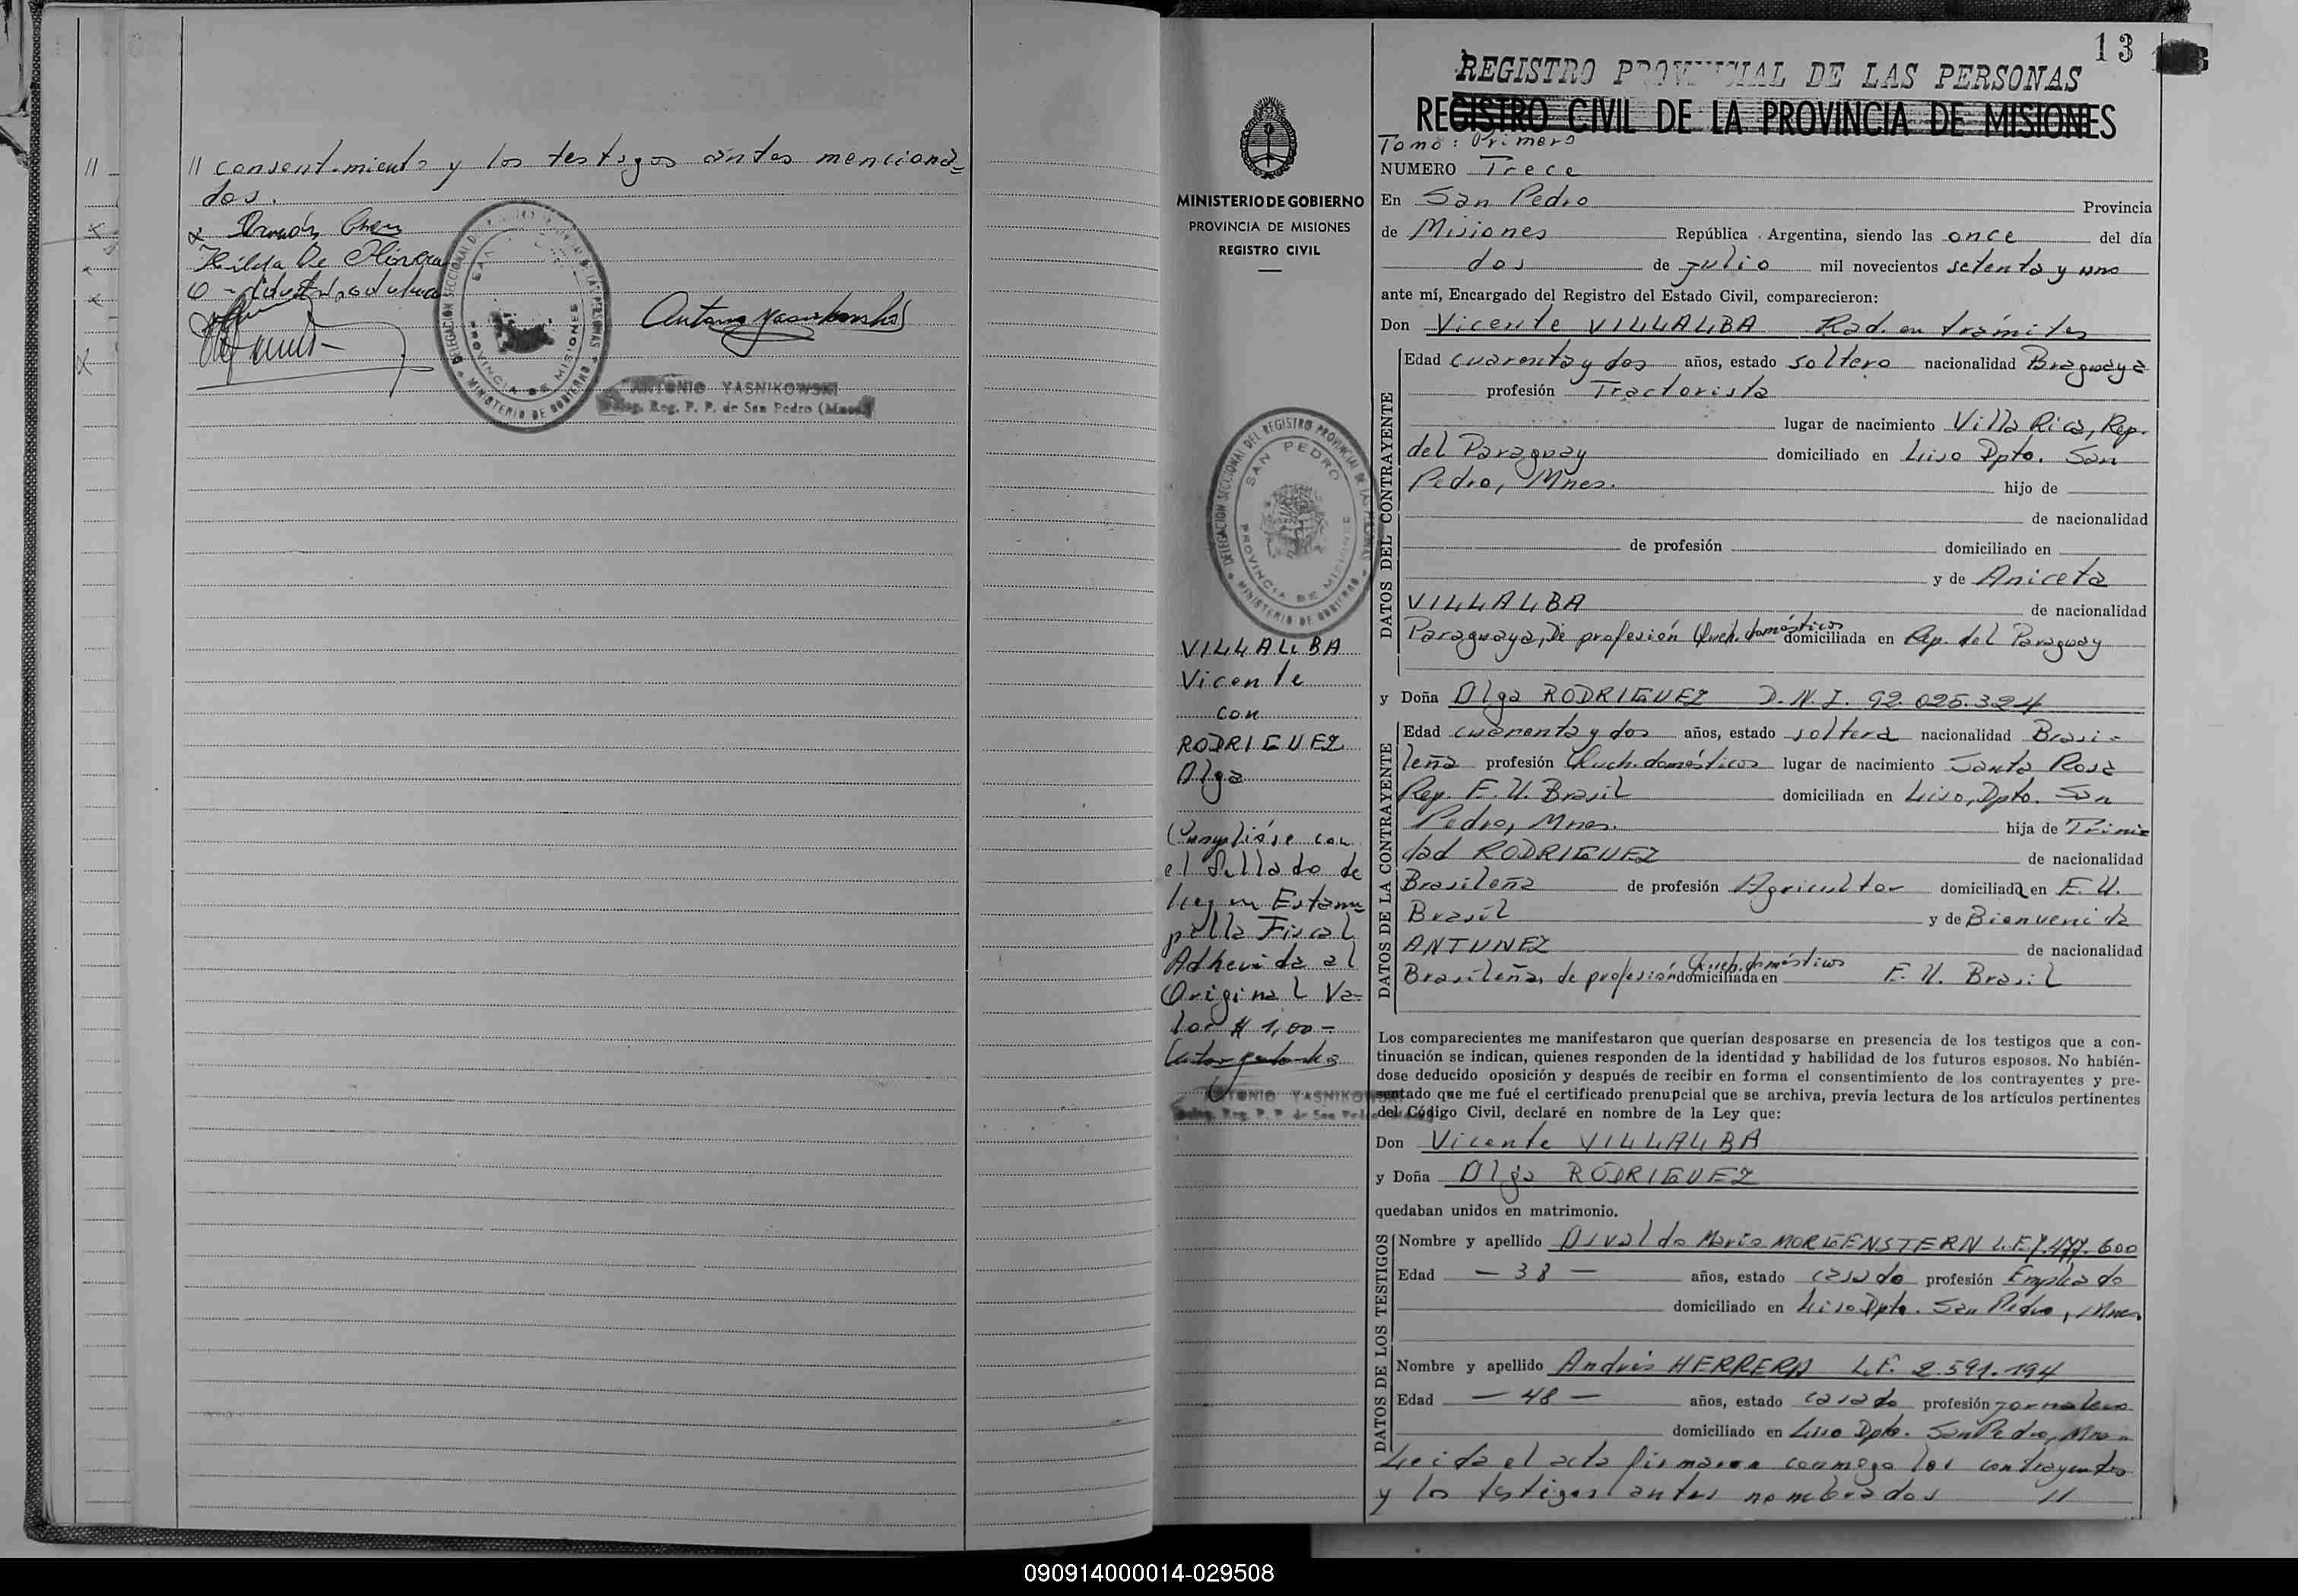 // consentimiento y los testigos antes menciona=
dos.
Hilda De Olivera
DELEGACION SECCIONAL DEL REGISTRO PROVINCIAL DE LAS PERSONAS
SAN
PROVINCIA DE MISIONES
MINISTERIO DE GOBIERNO
Antonio Yasnikowski
ANTONIO YASNIKOWSKI
Deleg. Reg. P. P. de San Pedro (Mnes)
13
REGISTRO PROVINCIAL DE LAS PERSONAS
REGISTRO CIVIL DE LA PROVINCIA DE MISIONES
MINISTERIO DE GOBIERNO
PROVINCIA DE MISIONES
REGISTRO CIVIL
DELEGACION SECCIONAL DEL REGISTRO PROVINCIAL DE LAS PERSONAS
SAN PEDRO
PROVINCIA DE MISIONES
MINISTERIO DE GOBIERNO
VILLALBA
Vicente
con
RODRIGUEZ
Olga
Cumplióse con
el Sellado de
ley en Estam=
pilla Fiscal
Adherida al
Original Va=
lor $ 1,00-
ANTONIO YASNIKOWSKI
Deleg. Reg. P. P. de San Pedro
Tomo: Primero
NUMERO Trece
En San Pedro Provincia
de Misiones República Argentina, siendo las once del día
dos de Julio mil novecientos setenta y uno
ante mí, Encargado del Registro del Estado Civil, comparecieron:
Don Vicente VILLALBA Rad. en trámites
DATOS DEL CONTRAYENTE
Edad cuarenta y dos años, estado soltero nacionalidad Paraguaya
profesión Tractorista
lugar de nacimiento Villa Rica, Rep.
del Paraguay domiciliado en Liso Dpto. San
Pedro, Mnes. hijo de
de nacionalidad
de profesión domiciliado en
y de Aniceta
VILLALBA de nacionalidad
Paraguaya, De profesión Queh. domésticos domiciliada en Rep. del Paraguay
y Doña Olga RODRIGUEZ D.N.I. 92.025.324
DATOS DE LA CONTRAYENTE
Edad cuarenta y dos años, estado soltera nacionalidad Brasi=
leña profesión Queh. domésticos lugar de nacimiento Santa Rosa
Rep. E.U. Brasil domiciliada en Liso, Dpto. San
Pedro, Mnes. hija de Trini=
dad RODRIGUEZ de nacionalidad
Brasileña de profesión Agricultor domiciliada en E.U.
Brasil y de Bienvenida
ANTUNEZ de nacionalidad
Brasileña, de profesión Queh. domésticos domiciliada en E.U. Brasil
Los comparecientes me manifestaron que querían desposarse en presencia de los testigos que a con-
tinuación se indican, quienes responden de la identidad y habilidad de los futuros esposos. No habién-
dose deducido oposición y después de recibir en forma el consentimiento de los contrayentes y pre-
sentado que me fué el certificado prenupcial que se archiva, previa lectura de los artículos pertinentes
del Código Civil, declaré en nombre de la Ley que:
Don Vicente VILLALBA
y Doña Olga RODRIGUEZ
quedaban unidos en matrimonio.
DATOS DE LOS TESTIGOS
Nombre y apellido Osvaldo Mario MORGENSTERN L.E. 7.477.600
Edad — 38 — años, estado casado profesión Empleado
domiciliado en Liso Dpto. San Pedro, Mnes
Nombre y apellido Andrés HERRERA L.E. 2.591.194
Edad — 48 — años, estado casado profesión Jornalero
domiciliado en Liso Dpto. San Pedro, Mnes
Leida el acta firmaron conmigo los contrayentes
y los testigos antes nombrados //
090914000014-029508